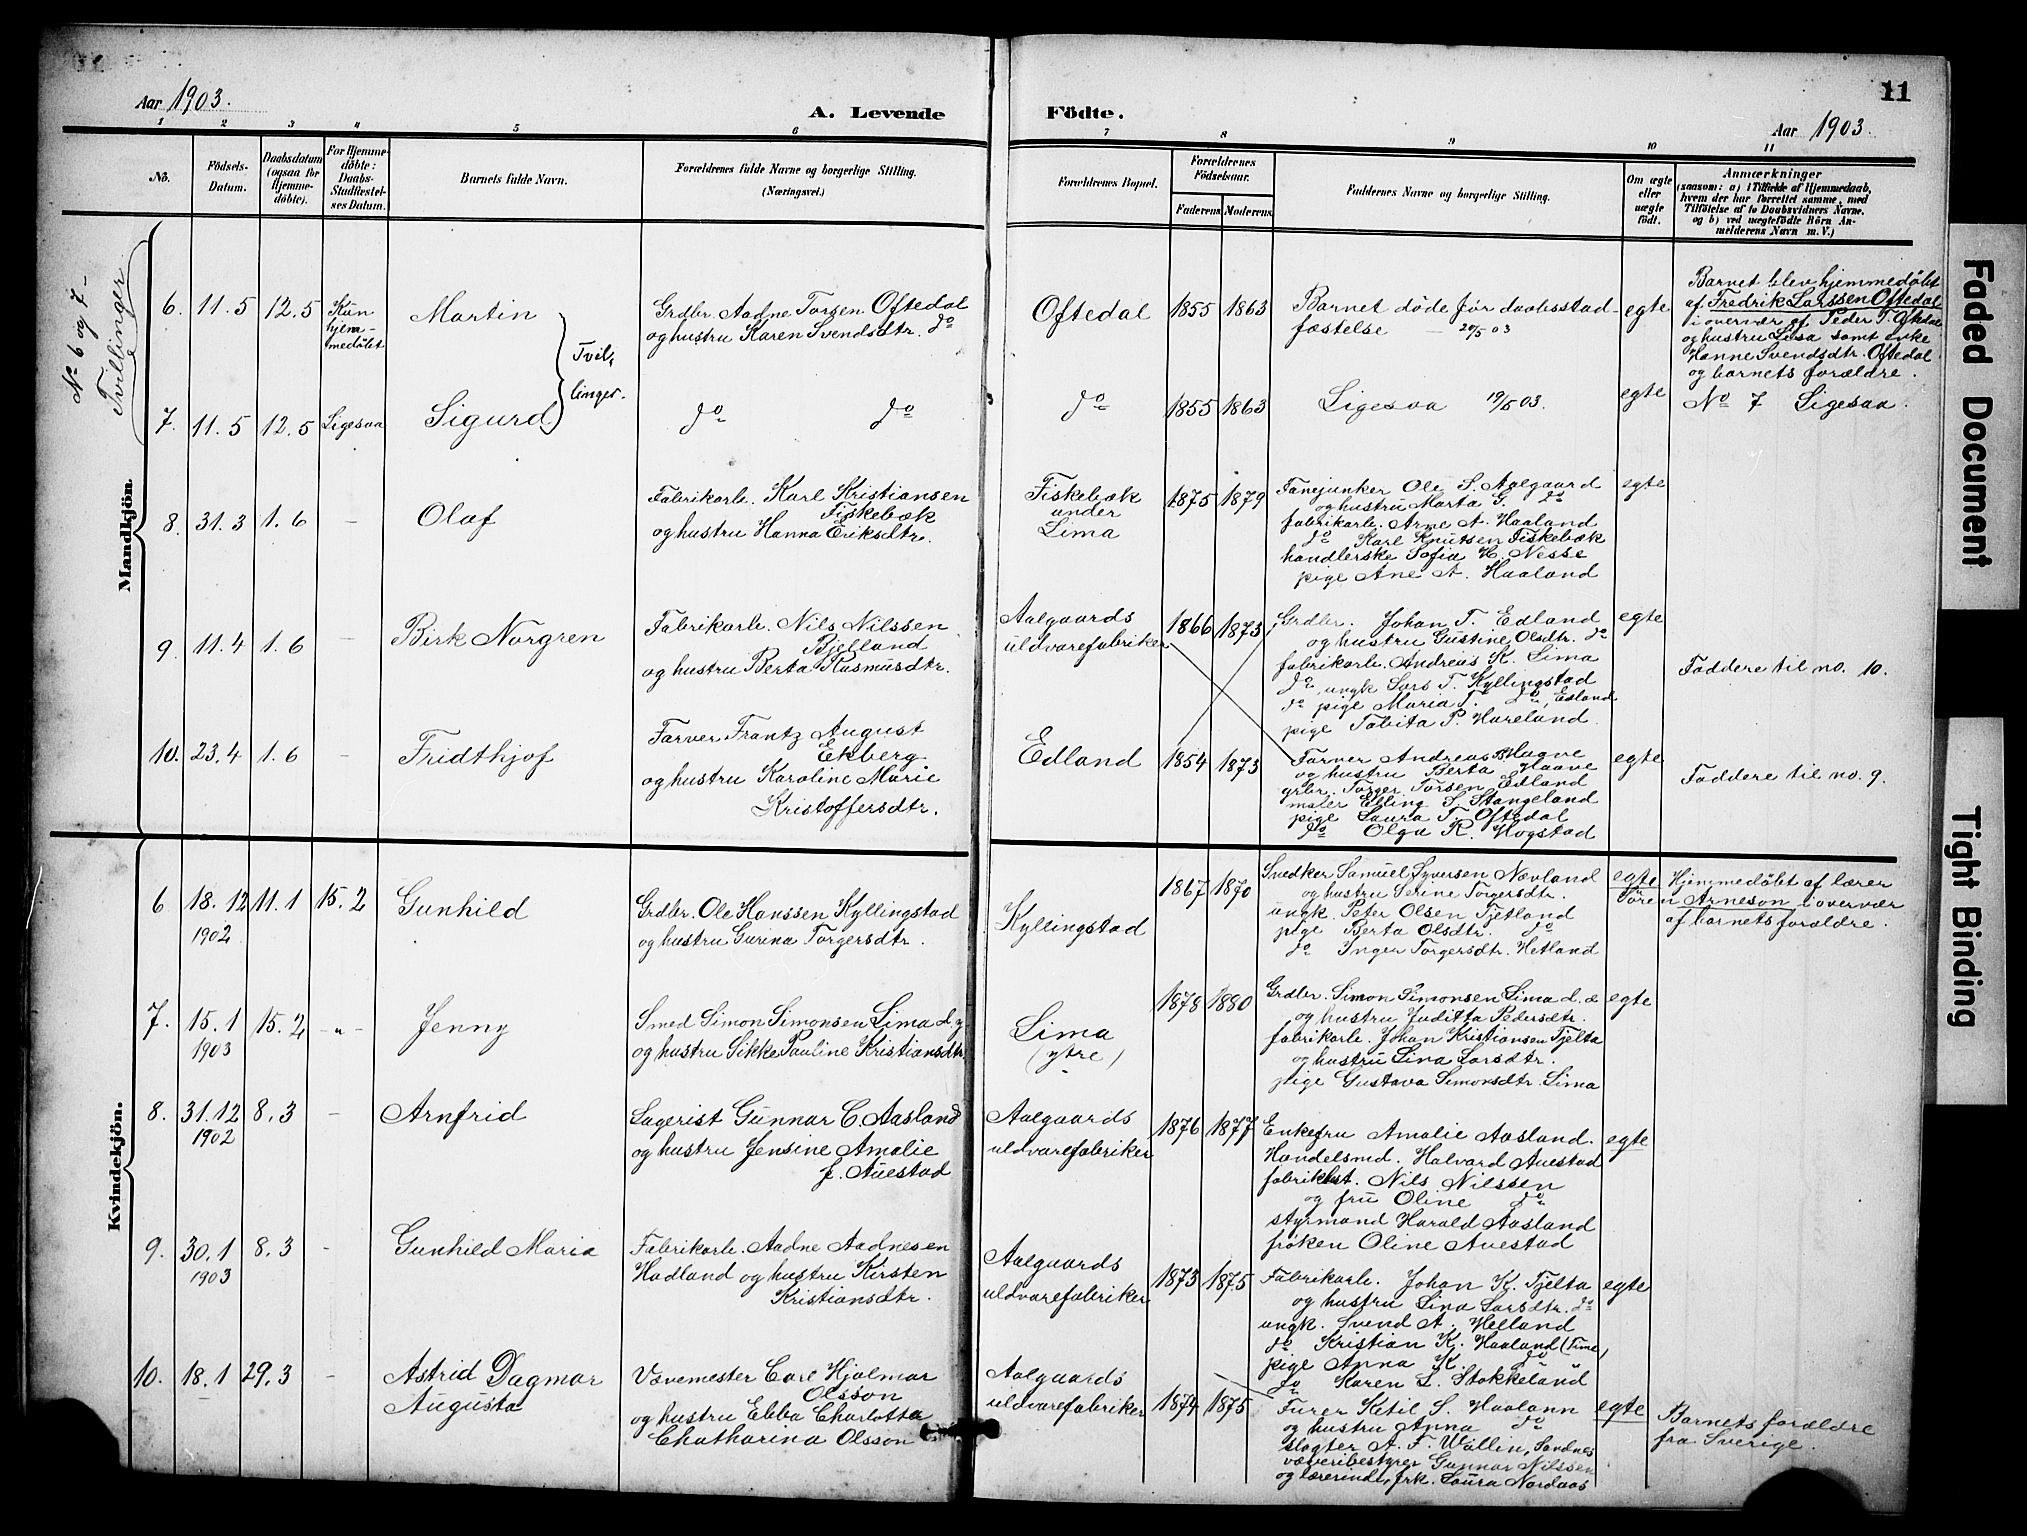 11
Aar 1903.
A. Levende Födte.
Aar 1903.
1 2 3 4 5 6 7 8 9 10 11
No.
Födsels-
Datum.
Daabsdatum
(ogsaa for
Hjemme-
döbte).
For Hjemme-
döbte:
Daabs-
Stadfæstel-
ses Datum.
Barnets fulde Navn.
Forældrenes fulde Navne og borgerlige Stilling.
(Næringsvei.)
Forældrenes Bopæl.
Forældrenes
Födselsaar.
Faderens Moderens
Faddernes Navne og borgerlige Stilling.
Om ægte
eller
uægte
födt.
Anmærkninger
(saasom: a) i Tilfælde af Hjemmedaab,
hvem der har forrettet samme, med
Tilföielse af to Daabsvidners Navne,
og b) ved uægtefödte Börn An-
melderens Navn m. V.)
No 6 og 7 -
Tvillinger.
Mandkjön.
6. 11.5 12.5
Kun
hjem-
medöbt
Martin
Tvil-
linger.
Grdbr. Aadne Torsen Oftedal
og hustru Karen Svendsdtr. do
Oftedal
1855 1863
Barnet döde för daabsstad-
fæstelse — 20/5 03
egte
Barnet blev hjemmedöbt
af Fredrik Larssen Oftedal
i overvær af Peder T. Oftedal
og hustru Lisa samt enke
Hanne Svendsdtr. Oftedal
og barnets forældre.
7. 11.5 12.5 Ligesaa
Sigurd
do do
do
1855 1863
Ligesaa 19/5 03.
egte
No 7 Ligesaa.
8. 31.3 1.6 -
Olaf
Fabrikarb. Karl Kristiansen
Fiskebæk
og hustru Hanna Eriksdtr.
Fiskebæk
under
Lima
1875 1879
Fanejunker Ole S. Aalgaard
og hustru Marta G. do
fabrikarb. Arne A. Haaland
do Karl Knutsen Fiskebæk
handlerske Sofia H. Nesse
pige Ane A. Haaland
egte
9. 11.4 1.6 -
Birk Norgren
Fabrikarb. Nils Nilssen
Bjelland
og hustru Berta Rasmusdtr.
Aalgaards
uldvarefabriker
1866 1873
Grdbr. Johan T. Edland
og hustru Gustine Olsdtr. do
fabrikarb. Andreas K. Lima
do, ungk Lars T. Kyllingstad
do pige Maria T. do, Edland
pige Tabita P. Hareland.
egte
Faddere til no. 10.
10. 23.4 1.6 -
Fridthjof
Farver Frantz August
Ekberg
og hustru Karoline Marie
Kristoffersdtr.
Edland
1854 1873
Farver Andreas Haave
og hustru Berta Haave
grbr. Torger Torsen Edland
maler Elling S. Stangeland
pige Laura T. Oftedal
do Olga R. Hogstad
egte
Faddere til no. 9.
Kvindekjön.
6 18.12 11.1 15.2
1902
Gunhild
Grdbr. Ole Hanssen Kyllingstad
og hustru Gurina Torgersdtr.
Kyllingstad
1867 1870
Snedker Samuel Syversen Nævland
og hustru Serine Torgersdtr.
ungk. Peter Olsen Tjetland
pige Berta Olsdtr. do
do Inger Torgersdtr. Hetland
egte
Hjemmedöbt af lærer
Sören Arneson i overvær
af barnets forældre.
7. 15.1 15.2 -"-
1903
Jenny
Smed Simon Simonsen Lima d. y
og hustru Sikke Pauline Kristiansdtr
Lima
(ytre)
1878 1880
Grdbr. Simon Simonsen Lima d. æ
og hustru Juditta Pedersdtr.
fabrikarb. Johan Kristiansen Tjelta
og hustru Lina Larsdtr.
pige Gustava Simonsdtr. Lima
egte
8. 31.12 8.3 -
1902
Arnfrid
Lagerist Gunnar C. Aasland
og hustru Jensine Amalie
f. Auestad
Aalgaards
uldvarefabriker
1876 1877
Enkefru Amalie Aasland.
Handelsmd. Halvard Auestad
fabrikbest. Nils Nilssen
og fru Oline do
styrmand Harald Aasland
fröken Oline Auestad
egte
9. 30.1 8.3 -
1903
Gunhild Maria
Fabrikarb. Aadne Aadnesen
Hadland og hustru Kirsten
Kristiansdtr.
Aalgaards
uldvarefabriker
1873 1875
Fabrikarb. Johan K. Tjelta
og hustru Lina Larsdtr. do
ungk. Svend A. Helland
do Kristian K. Haaland (Time)
pige Anna K. do
do Karen L. Stokkeland
egte
10. 18.1 29.3 -
Astrid Dagmar
Augusta
Vævemester Carl Hjalmar
Olsson
og hustru Ebba Charlotta
Chatharina Olsson
Aalgaards
uldvarefabriker
1874 1875
Furer Ketil S. Haalann
og hustru Anna do
slagter A. F. Wallin, Sandnes
væveribestyrer Gunnar Nilssen
og lærerinde, frk. Laura Nordaas
egte
Barnets forældre
fra Sverige.
Faded Document
Tight Binding